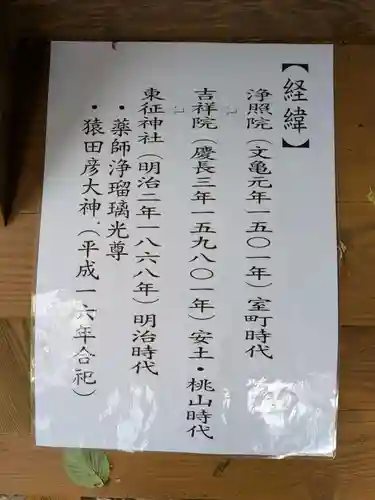 【経緯】
浄照院（文亀元年一五〇一年）室町時代
吉祥院（慶長三年一五九八〇一年）安土・桃山時代
東征神社（明治二年一八六八年）明治時代
・薬師浄瑠璃光尊
・猿田彦大神（平成一六年合祀）